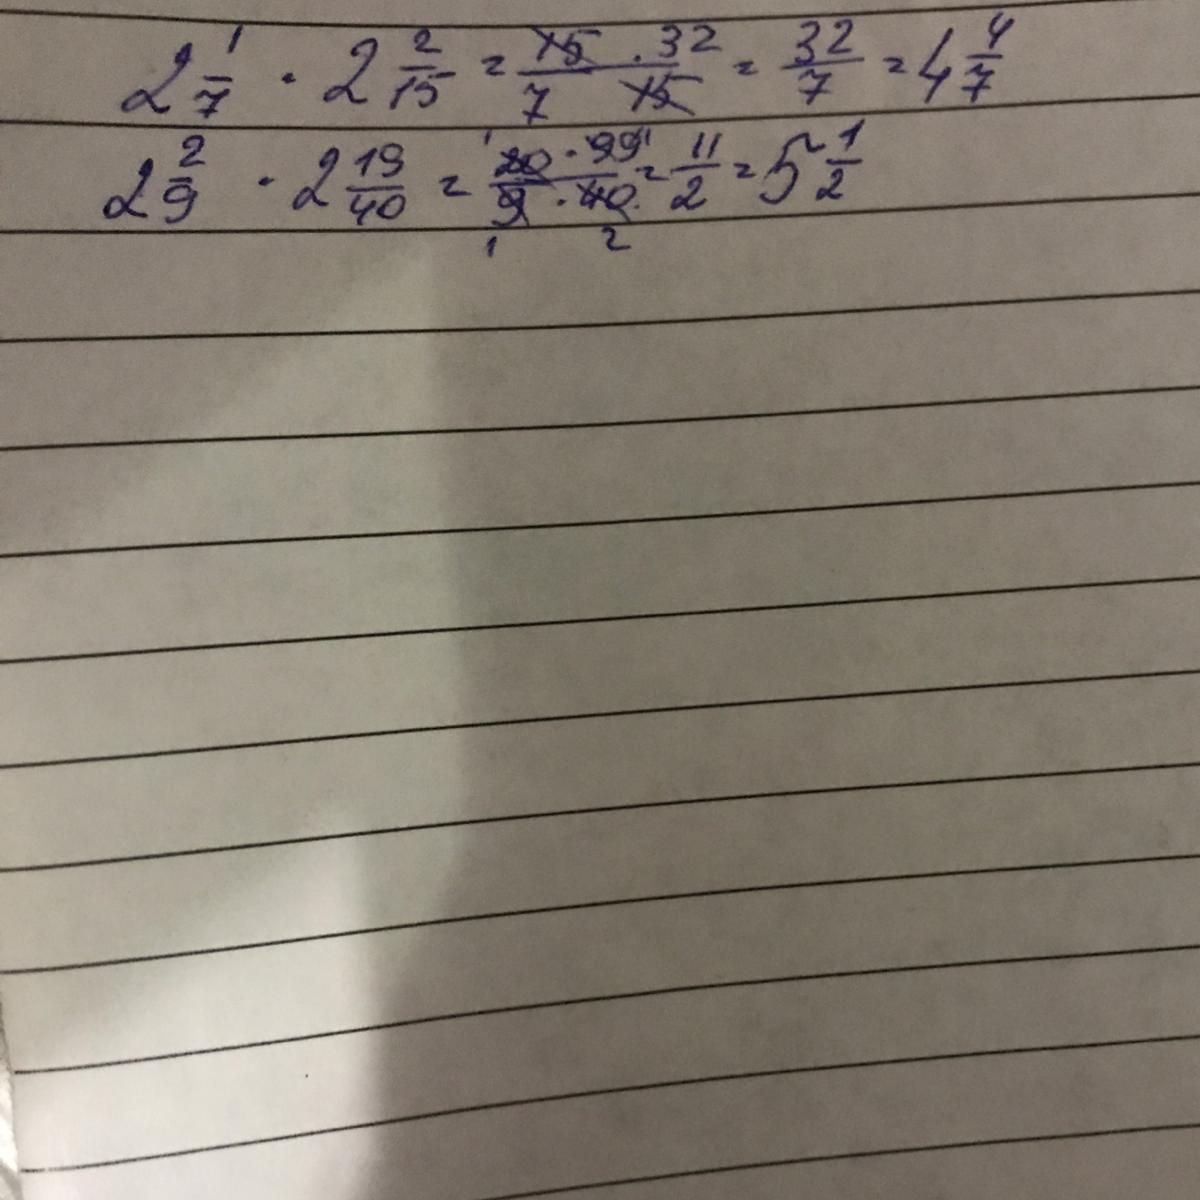 2 1/7 · 2 2/15 = 15 · 32 / 7 15 = 32/7 = 4 4/7
2 2/9 · 2 19/40 = 1 20 · 99 11 / 9 · 40 1 2 = 11/2 = 5 1/2